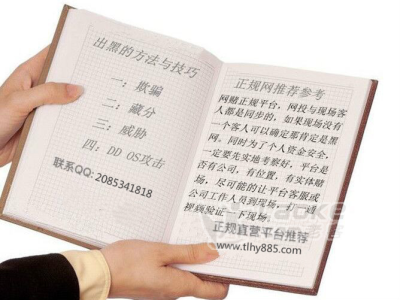 出黑的方法与技巧
一：欺骗
二：藏分
三：威胁
四：DD OS攻击
联系QQ: 2085341818
正规网推荐参考
网赌正规平台，网投与现场客
人都是同步的，如果现场没有
一个客人可以确定那肯定是黑
网。同时为了个人资金安全，
一定要先实地考察好，平台是
否有公司，有位置，有实体赌
场，尽可能的让平台客服或
公司工作人员到现场，在一通
视频验证 下现场。
正规直营平台推荐
www.tlhy885.com